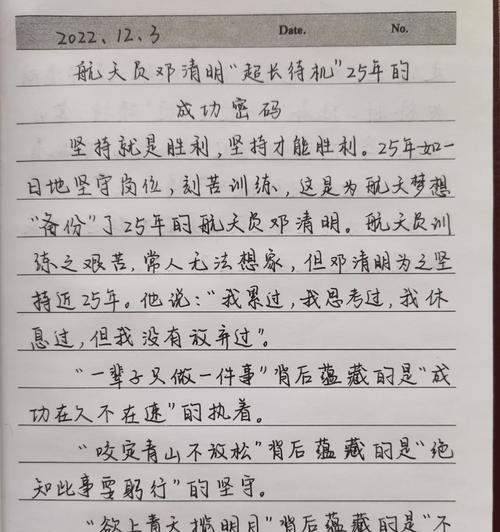 2022.12.3
Date.
No.
航天员邓清明“超长待机”25年的
成功密码
坚持就是胜利，坚持才能胜利。25年如一
日地坚守岗位，刻苦训练，这是为航天梦想
“备份”了25年的航天员邓清明。航天员训
练之艰苦，常人无法想象，但邓清明为之坚
持近25年。他说：“我累过，我思考过，我休
息过，但我没有放弃过”。
“一辈子只做一件事”背后蕴藏的是“成
功在久不在速”的执着。
“咬定青山不放松”背后蕴藏的是“绝
知此事要躬行”的坚守。
“欲上青天揽明月”背后蕴藏的是“不